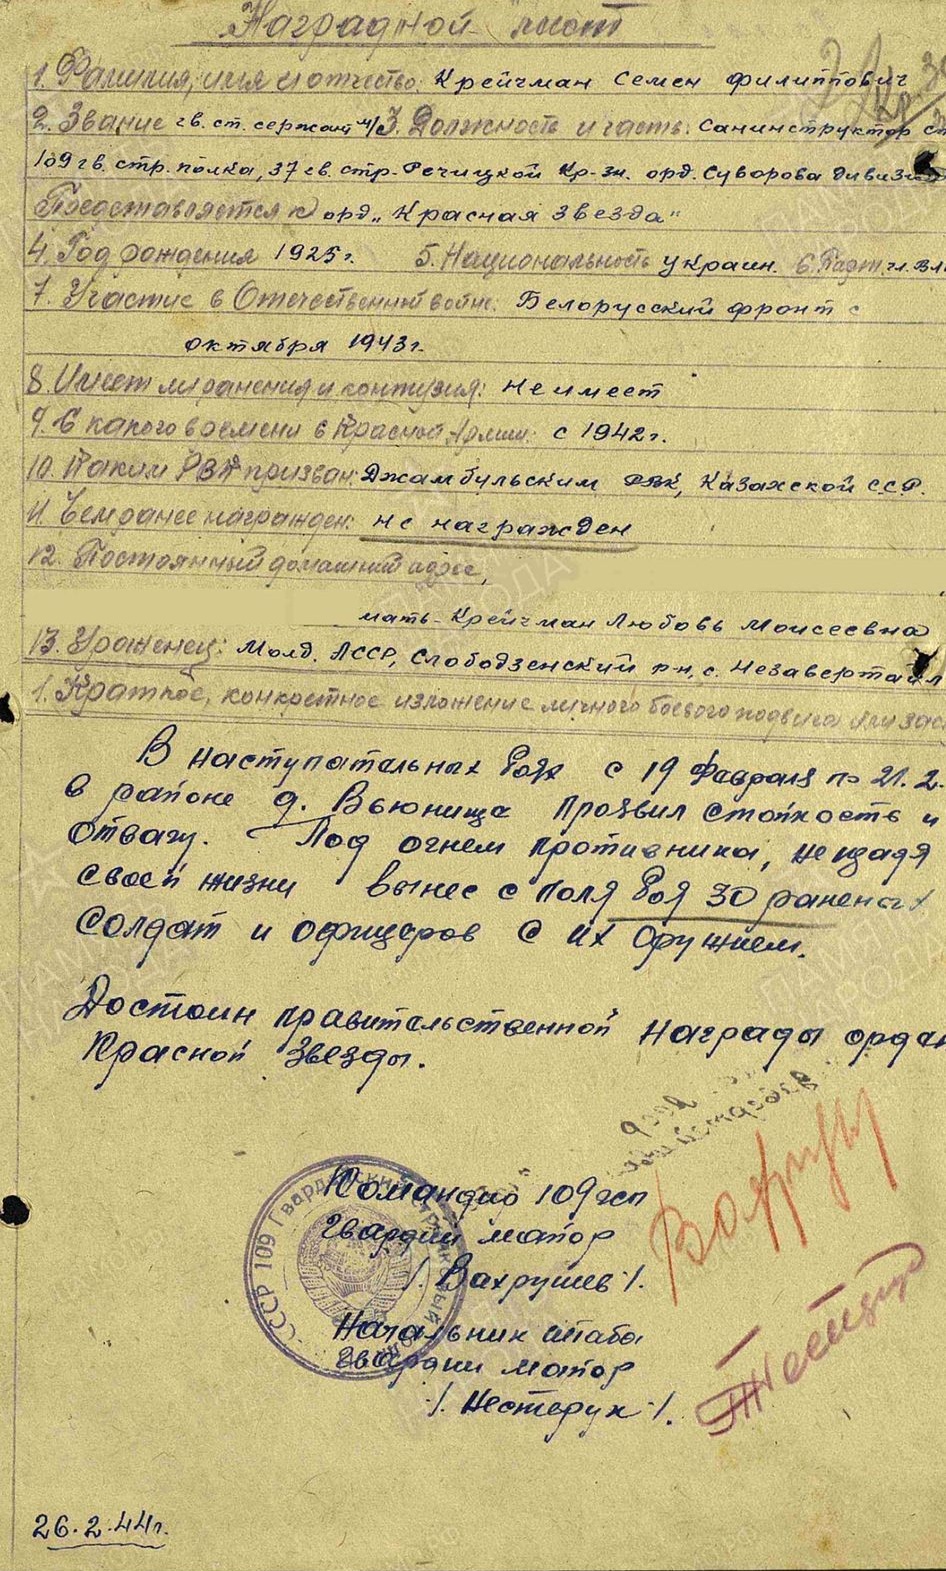 Наградной лист
1. Фамилия, имя и отчество: Крейчман Семен Филиппович
2. Звание гв. ст. сержант м/с 3. Должность и часть: Санинструктор
109 гв. стр. полка, 37 гв. стр. Речицкой Кр-зн. орд. Суворова дивизии
Представляется к орд. "Красная звезда"
4. Год рождения 1925 г. 5. Национальность украин. 6. Парт.
7. Участие в Отечественной войне: Белорусский фронт с
октября 1943 г.
8. Имеет ли ранения и контузия: Не имеет
9. С какого времени в Красной Армии: с 1942 г.
10. Каким РВК призван: Джамбульским РВК, Казахской ССР.
11. Чем ранее награжден: не награжден
12. Постоянный домашний адрес,
мать - Крейчман Любовь Моисеевна
13. Уроженец: Молд. АССР, Слободзейский р-н, с. Незавертайл
1. Краткое, конкретное изложение личного боевого подвига или зас
В наступательных боях с 19 февраля по 21.2.
в районе д. Вьюнища проявил стойкость и
отвагу. Под огнем противника, не щадя
своей жизни вынес с поля боя 30 раненых
солдат и офицеров с их оружием.
Достоин правительственной награды орден
Красной Звезды.
СССР 109 Гвардейский стрелковый полк
Командир 109 гсп
гвардии майор
/. Вахрушев ./.
Начальник штаба
гвардии майор
./. Нестерук ./.
26.2.44 г.